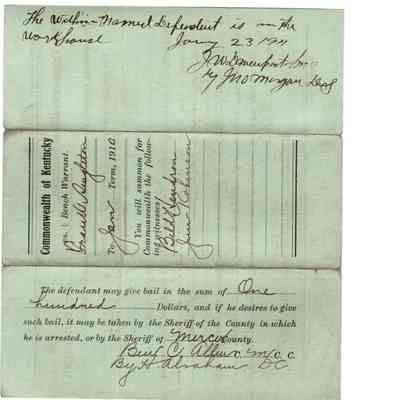 The Within Named Dependent is in the
Workhouse Jany 23 1911
J. W. Davenport
By Jno Morgan
Commonwealth of Kentucky
Vs. } Bench Warrant.
Singleton
To Jan Term, 1910
You will summon for
Commonwealth the follow-
ing witnesses
Bill Hendron
Jim Robinson
The defendant may give bail in the sum of One
hundred Dollars, and if he desires to give
such bail, it may be taken by the Sheriff of the County in which
he is arrested, or by the Sheriff of Mercer County.
Benj C. Allin C. M. C. C.
By H Abraham D C